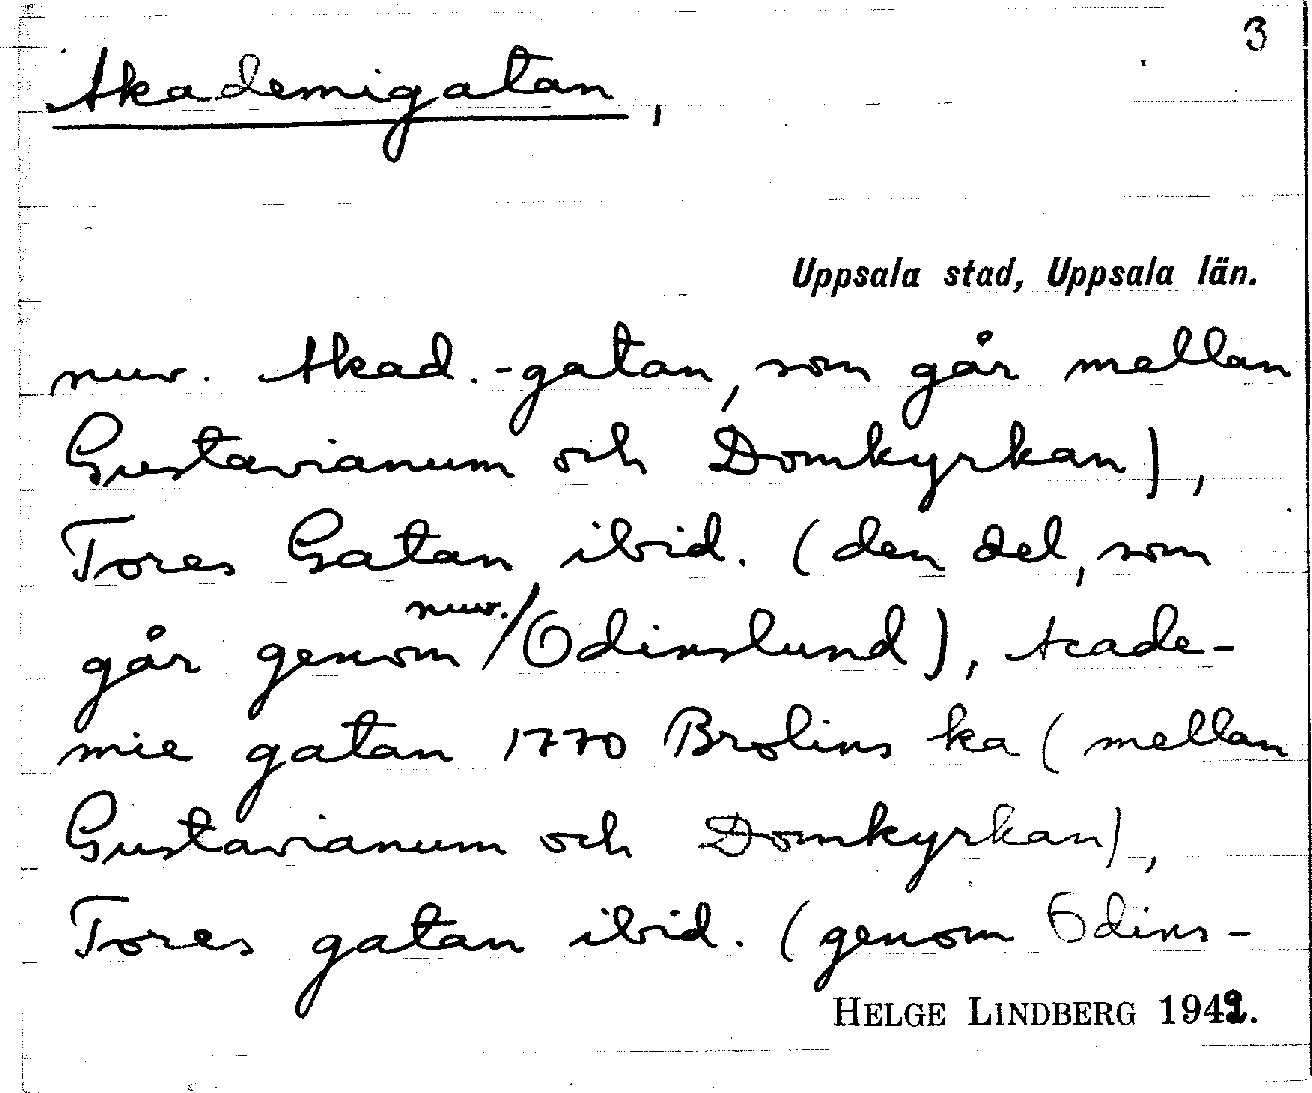 3
Akademigatan,
Uppsala stad, Uppsala län.
nuv. Akad.-gatan, som går mellan
Gustavianum och Domkyrkan),
Tores Gatan ibid. (den del, som
går genom nuv./Odinslund), Acade-
mie gatan 1770 Brolins ka (mellan
Gustavianum och Domkyrkan),
Tores gatan ibid. (genom Odins-
HELGE LINDBERG 1942.